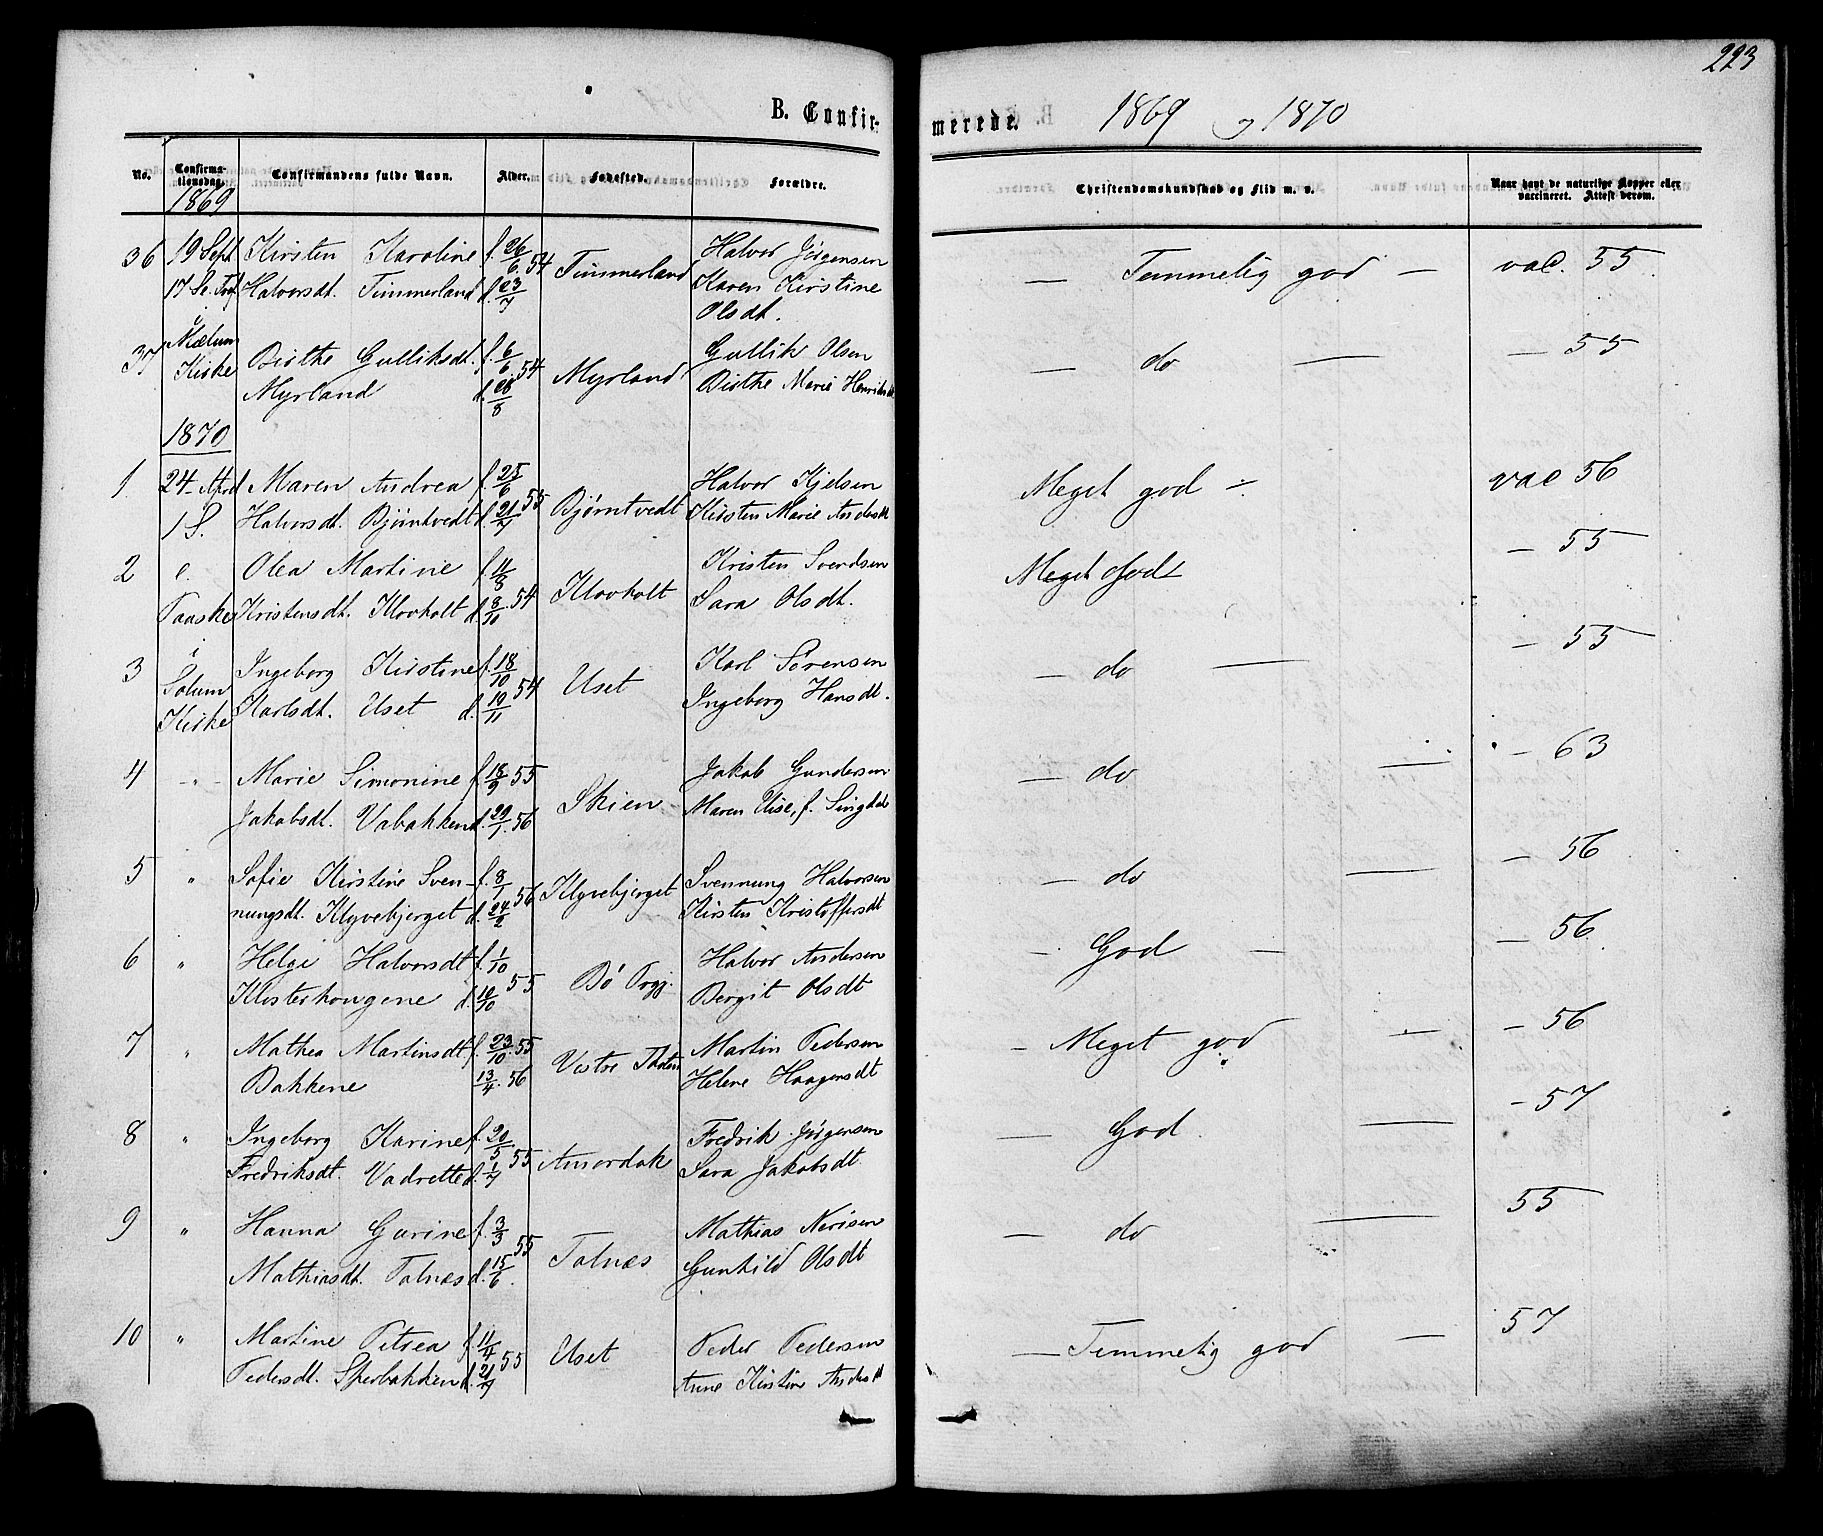 223
B. Confirmerede. 1869 og 1870
No. Confirmationsdag. Confirmandens fulde Navn. Alder. Fødested. Forældre. Christendomskundskab og Flid m. v. Naar havt de naturlige Kopper eller vaccineret. Attest derom.
1869
36 19 Sept Kirsten Karoline f. 26/6 54 Timmerland Halvor Jörgensen — Temmelig god — vac. 55
17 S. e. Tref Halvorsdt. Timmerland d. 23/7 Karen Kirstine
i Olsdt.
37 Mælum Birthe Gulliksdt. f. 6/6 54 Myrland Gullik Olsen — do — — 55
Kirke Myrland d. 28/8 Birthe Marie Henriksdt
1870
1 24 April Maren Andrea f. 25/6 55 Bjørntvedt Halvor Kjelsen Meget god vac 56
1 S. Halvorsdt. Bjørntvedt d. 21/7 Kirsten Marie Andersdt
2 e. Olea Martine f. 11/8 54 Klovholt Kristen Svendsen Meget God — 55
Paaske Kristensdt. Klovholt d. 8/10 Sara Olsdt.
3 i Ingeborg Kirstine f. 18/10 54 Uset Karl Sörensen — do — — 55
Solum Karlsdt. Uset d. 19/11 Ingeborg Hansdt.
Kirke
4 — " — Marie Simonine f. 18/9 55 Skien Jakob Gundersen — do — — 63
Jakobsdt. Vabakken d. 29/1. 56 Maren Elise, f.
5 " Sofie Kirstine Sven- f. 8/1 56 Klyvebjerget Svennung Halvorsen — do — — 56
nungsdt. Klyvebjerget d. 24/2 Kirsten Kristoffersdt
6 " Helge Halvorsdt f. 1/10 55 Bö Prgj. Halvor Andersen — God — — 56
Klosterhougene d. 10/10 Bergit Olsdt
7 " Mathea Martinsdt. f. 23/10. 55 Vestre Thoten Martin Pedersen — Meget god — — 56
Bakkene 13/4. 56 Helene Haagensdt
8 " Ingeborg Karine f. 20/5 55 Amordak Fredrik Jörgensen — God. — — 57
Fredriksdt. Vadrette d. 1/7 Sara Jakobsdt.
9 " Hanna Gurine f. 3/3 55 Tolnæs Mathias Nerisen — do — 55
Mathiasdt. Tolnæs d. 15/6. Gunhild Olsdt
10 " Martine Petrea f. 11/4 55 Uset Peder Pedersen — Temmelig god — 57
Pedersdt. Sperbakken d. 21/9 Anne Kirstine Andersdt